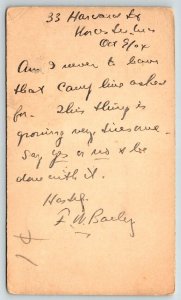 33 Harvard St
Worcester, Mass
Oct 8/04
Am I never to have
that Camp line asked
for. This thing is
growing very tiresome.
Say yes or no & be
done with it.
Hastily
F. W. Bailey